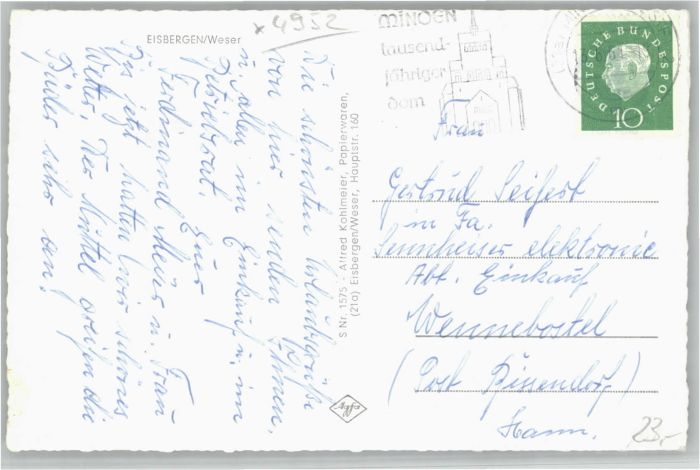 EISBERGEN/Weser
x 4952
MINDEN
tausend-
jähriger
dom
DEUTSCHE BUNDESPOST
10
Die schönsten Urlaubsgrüße
von hier senden Ihnen,
u. allen im Einkauf u. im
Betriebsrat. Euer
Ferdinand Meier u. Frau
Bis jetzt hatten wir schönes
Wetter. Die Mittel greifen die
Bäder sehr an!
S Nr. 1575 - Alfred Kohlmeier, Papierwaren,
(21a) Eisbergen/Weser, Hauptstr. 160
Agfa
Frau
Gertrud Seifert
in Fa.
Sennheiser elektronic
Abt. Einkauf
Wennebostel
(Post Bissendorf)
Hann.
23,-